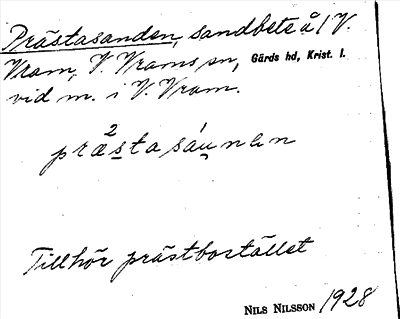 Prästasanden, sandbete å 1 V.
Vram, V. Vrams sn, Gärds hd, Krist. l.
vid m. i V. Vram.
2
præstasáu̯nən
Tillhör prästbostället
NILS NILSSON 1928